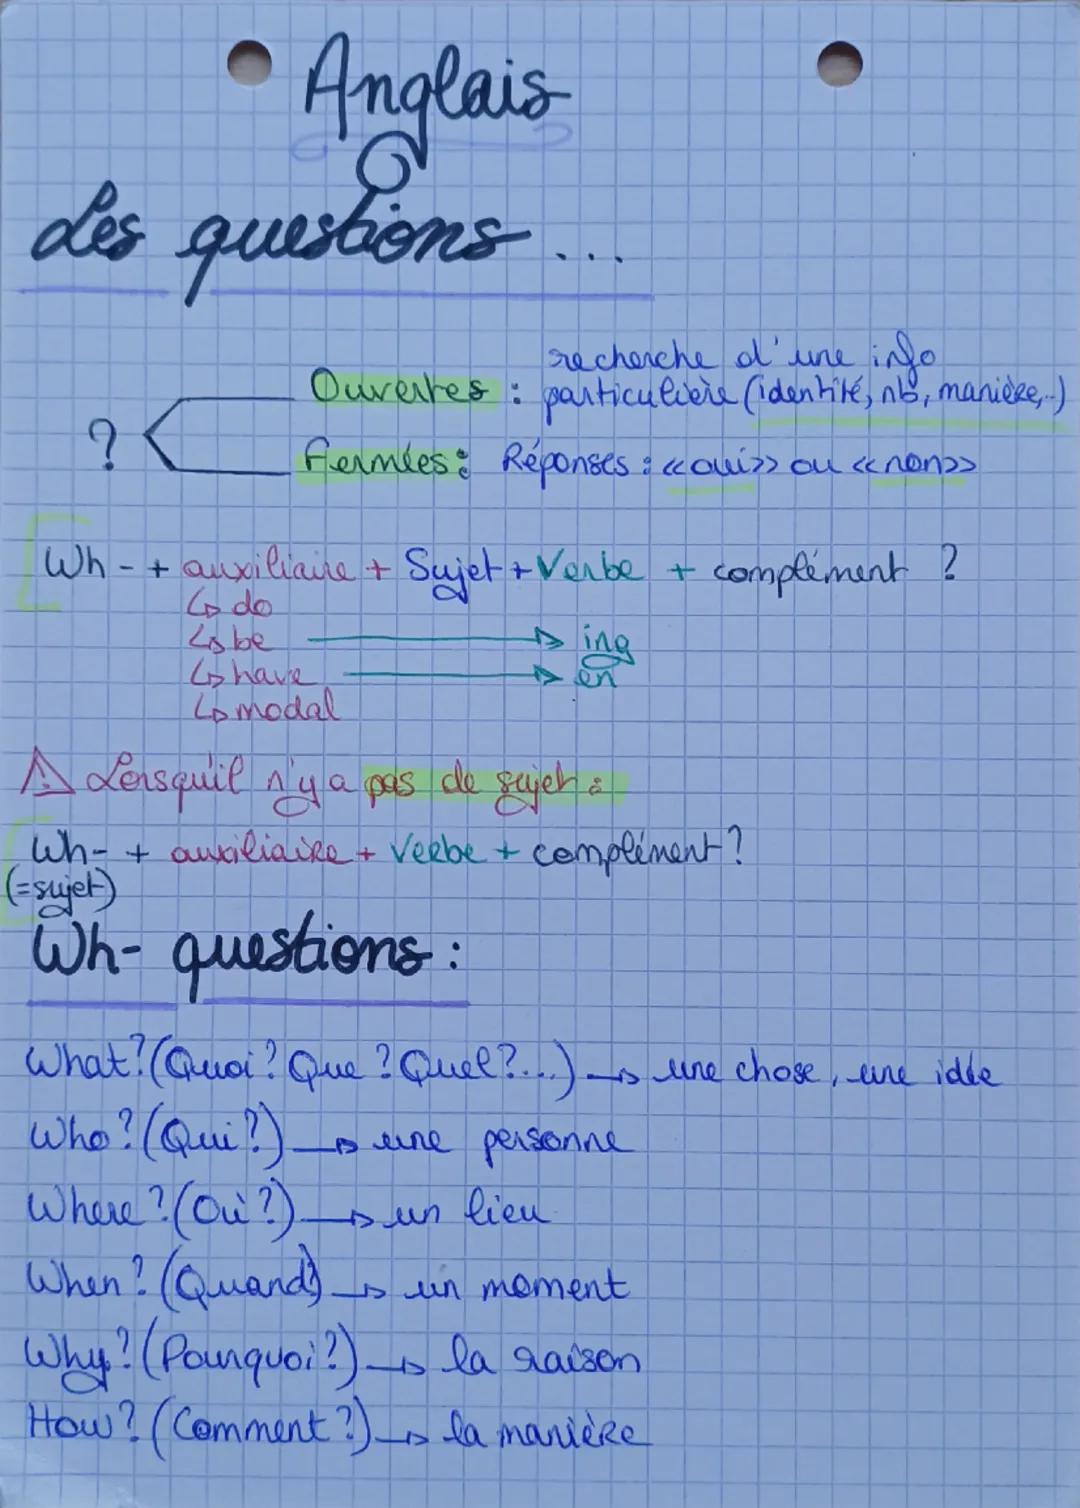 Anglais
Les questions ...
recherche d'une info
Ouvertes : particulière (identité, nb, manière,..)
?
Fermées : Réponses : «oui» ou «non»
Wh- + auxiliaire + Sujet + Verbe + complément ?
↳ do
↳ be → ing
↳ have → en
↳ modal
⚠ Lorsqu'il n'y a pas de sujet :
Wh- + auxiliaire + Verbe + complément ?
(=sujet)
Wh- questions :
What? (Quoi? Que? Quel?...) → une chose, une idée
Who? (Qui?) → une personne
Where? (Où?) → un lieu
When? (Quand?) → un moment
Why? (Pourquoi?) → la raison
How? (Comment?) → la manière